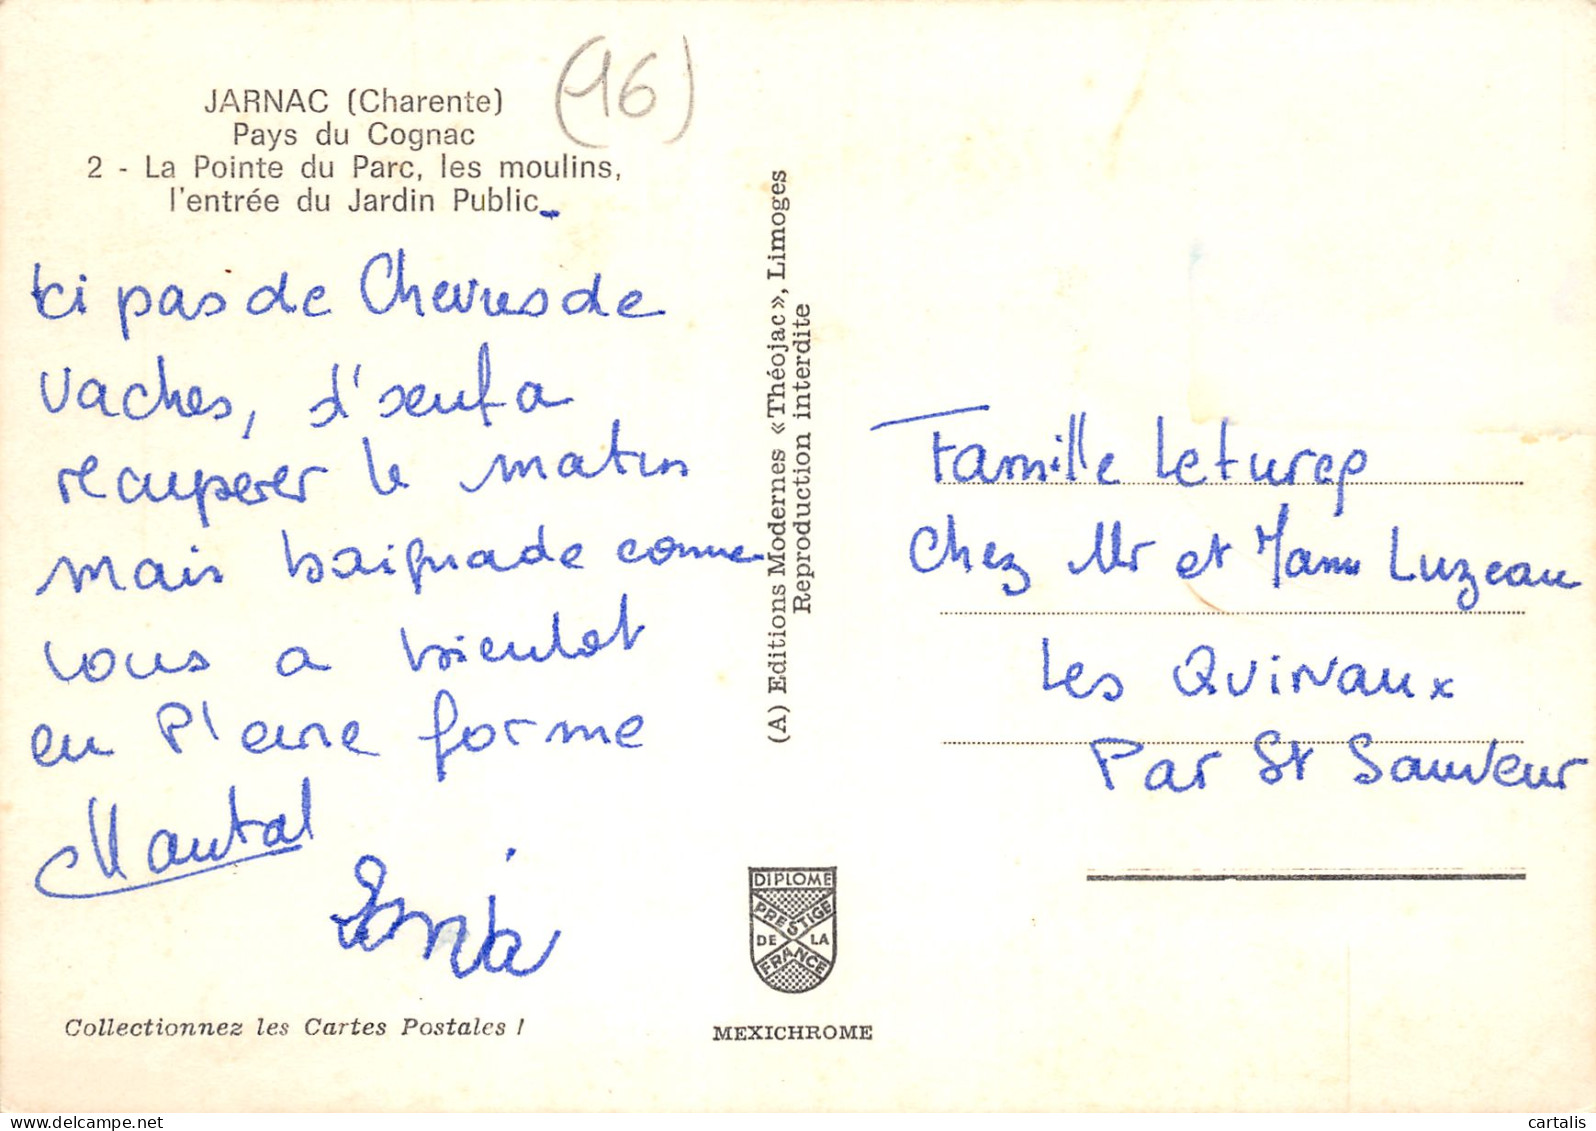 JARNAC (Charente)
Pays du Cognac
2 - La Pointe du Parc, les moulins,
l'entrée du Jardin Public
(16)
Ici pas de Chevres de
vaches, d'
recuperer le matin
mais baignade comme
vous a bientot
en Pleine forme
Chantal
Collectionnez les Cartes Postales !
(A) Editions Modernes «Théojac», Limoges
Reproduction interdite
DIPLOME
PRESTIGE
DE LA
FRANCE
MEXICHROME
Famille
Chez Mr et Mame Luzeau
Les
Par St Sauveur
delcampe.net
cartalis